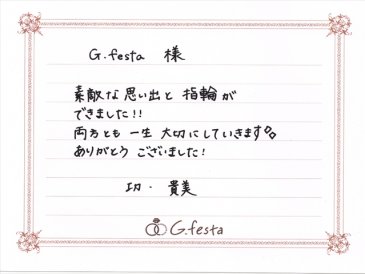 G.festa 様
素敵な思い出と指輪が
できました!!
両方とも一生大切にしていきます。
ありがとうございました!
功・貴美
G.festa